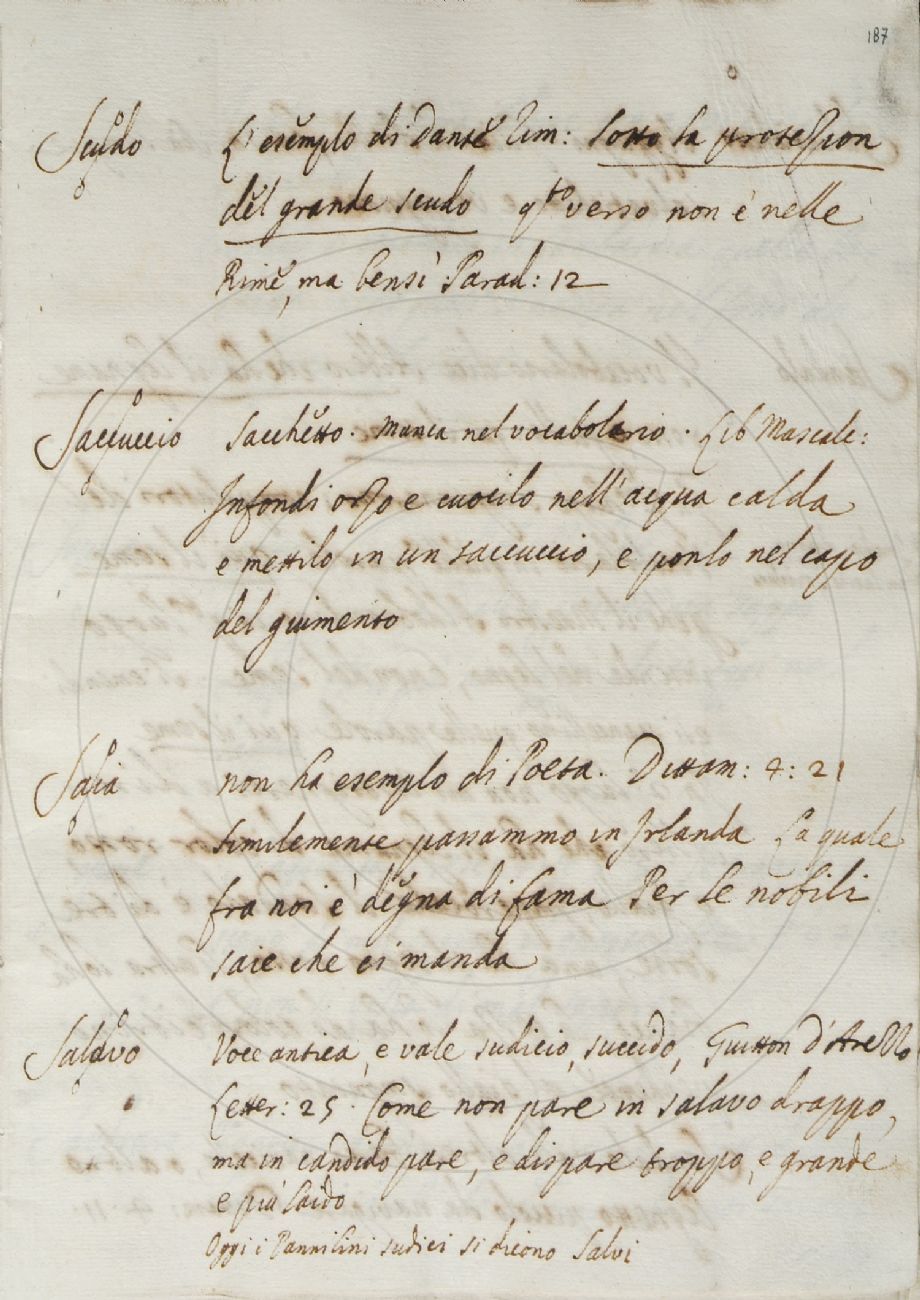 187
Scudo L'esemplo di Dante Rim: sotto la protezion
del grande scudo q.sto verso non è nelle
Rime, ma bensì Parad: 12
Saccuccio Sacchetto. Manca nel vocabolario. Lib Mascalc:
Infondi orzo e cuocilo nell'acqua calda
e mettilo in un saccuccio, e ponlo nel capo
del giumento
Saia non ha esemplo di Poeta. Dittam: 4: 21
Similemente passammo in Irlanda La quale
fra noi è degna di fama Per le nobili
saie che ci manda
Salavo Voce antica, e vale sudicio, succido, Guitton d'Arezzo
Letter: 25. Come non pare in salavo drappo,
ma in candido pare, e dispare troppo, e grande
e più laido
Oggi i Pannilini sudici si dicono Salvi